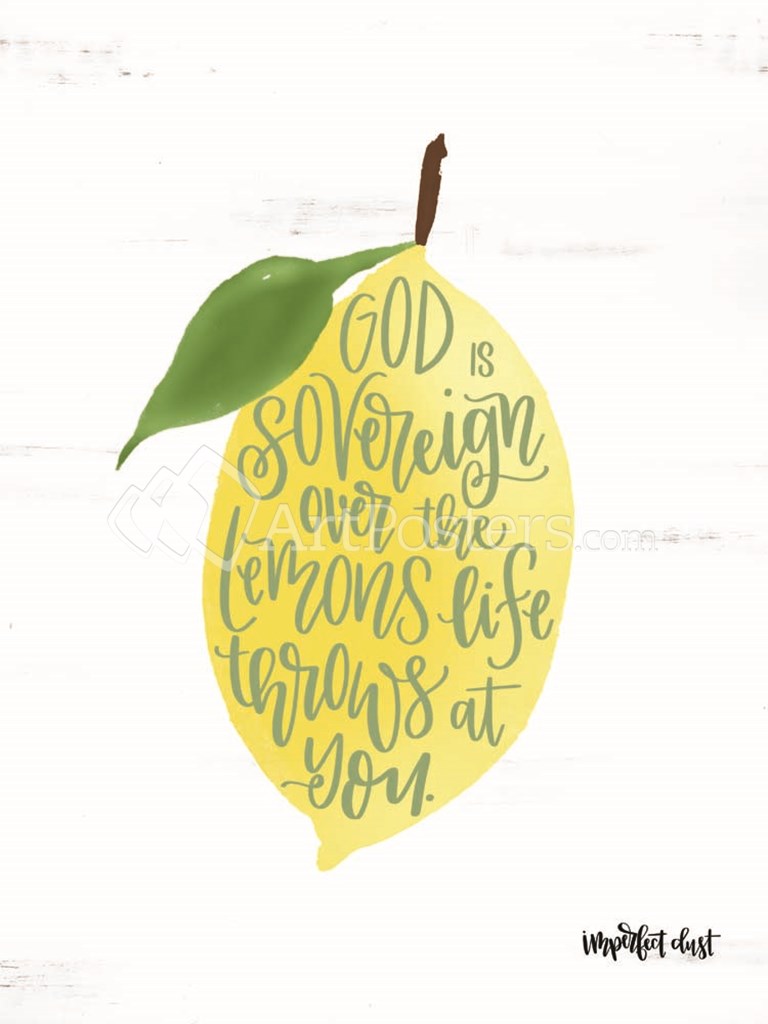 GOD is
sovereign
over the
Lemons life
throws at
you.
ArtPosters.com
imperfect dust